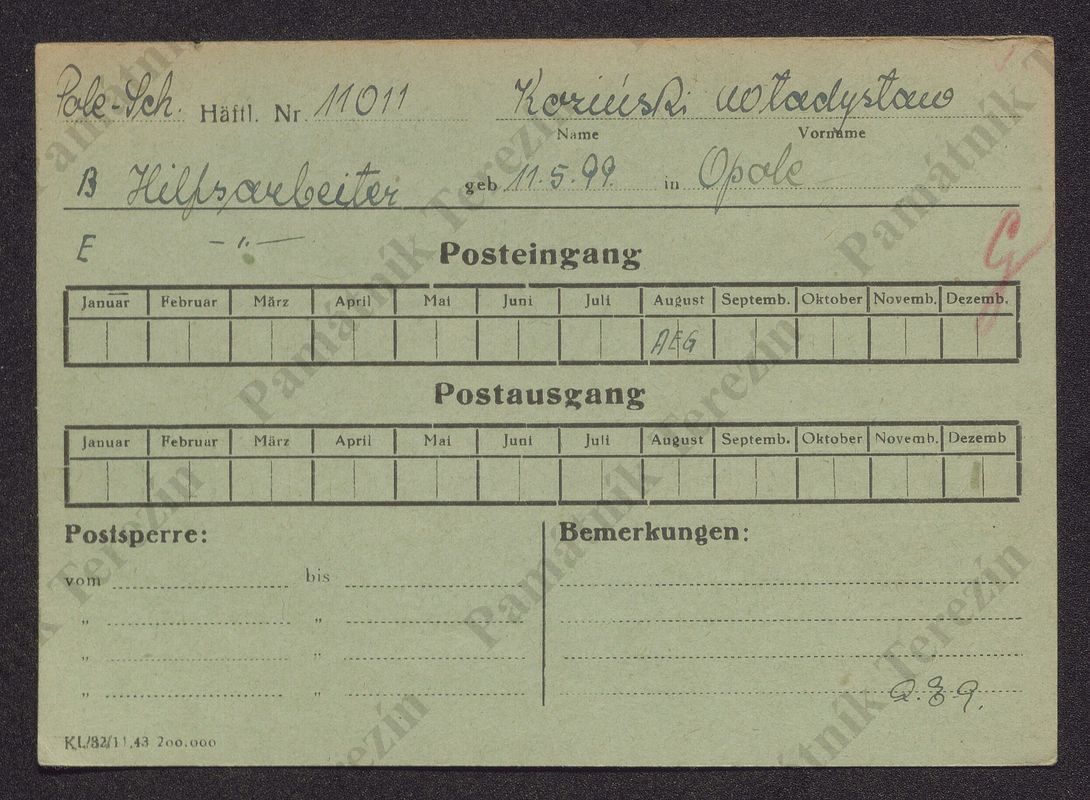 Pole-Sch. Häftl. Nr. 11011 Koziński Władysław
Name Vorname
B Hilfsarbeiter geb 11.5.99. in Opole
E — " —
Posteingang
Januar Februar März April Mai Juni Juli August Septemb. Oktober Novemb. Dezemb.
AEG
Postausgang
Januar Februar März April Mai Juni Juli August Septemb. Oktober Novemb. Dezemb
Postsperre: Bemerkungen:
vom bis
" "
" "
" "
KL/82/11.43 200.000
Památník Terezín